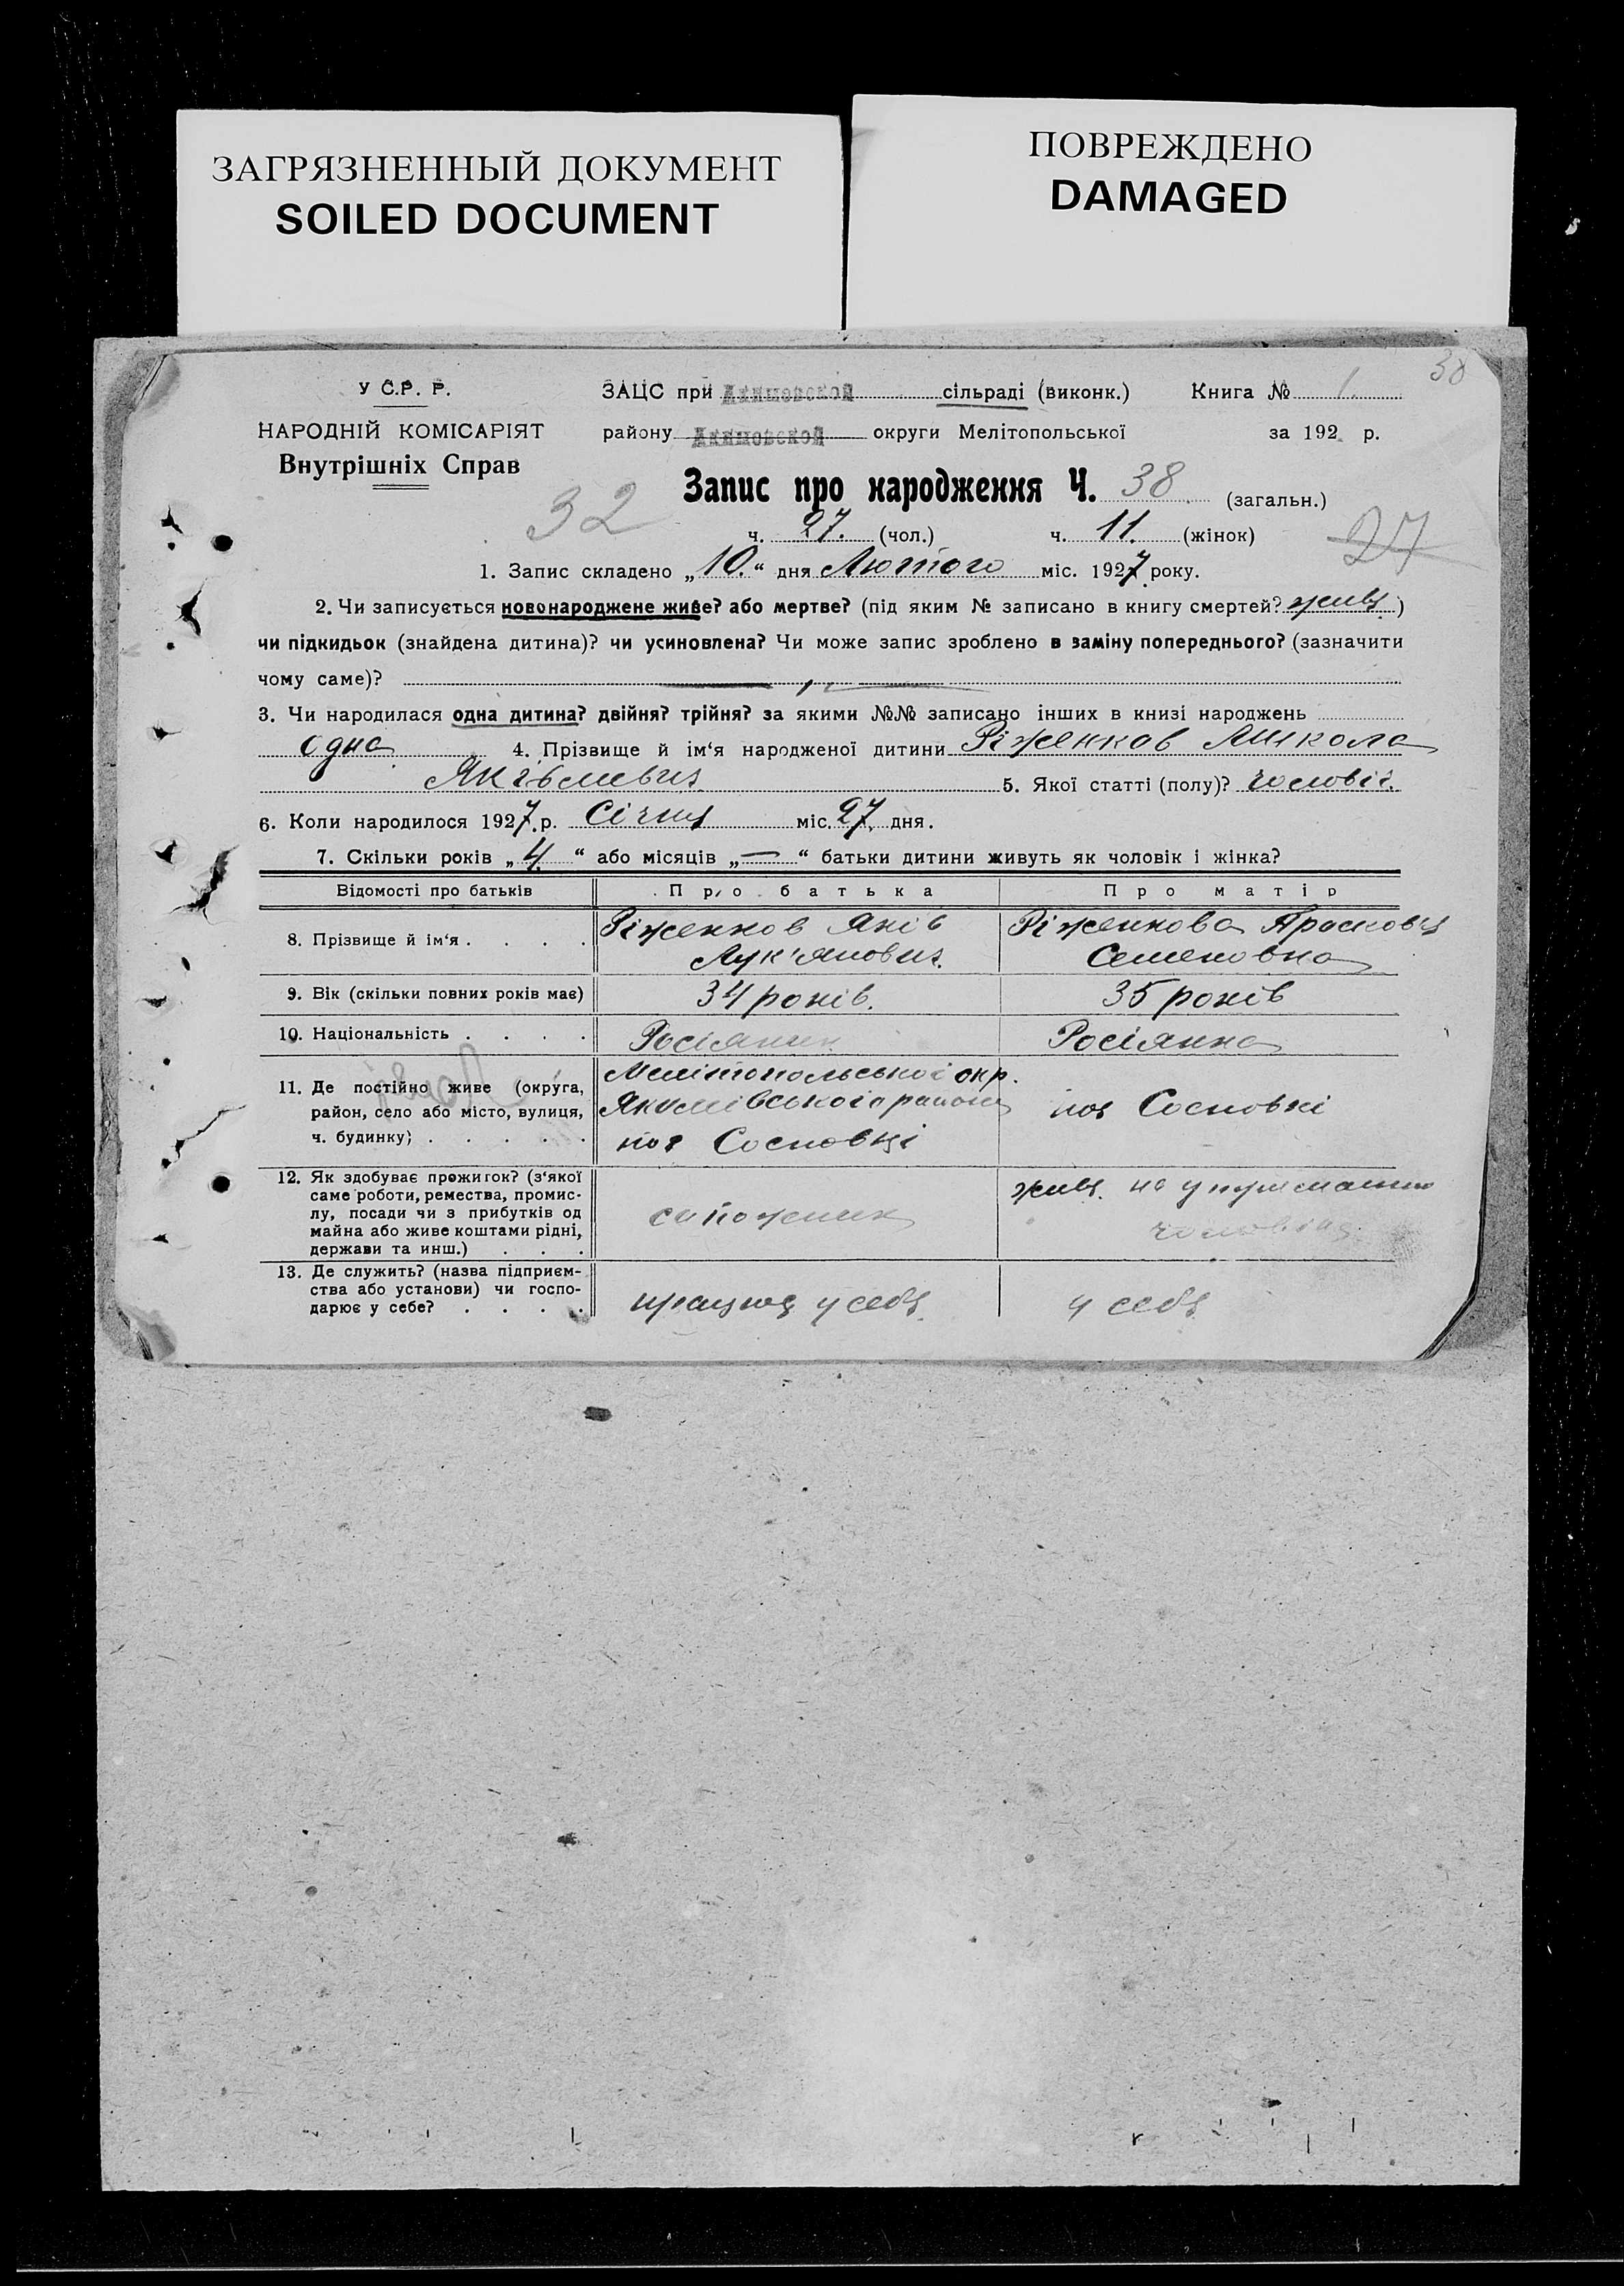 ЗАГРЯЗНЕННЫЙ ДОКУМЕНТ
SOILED DOCUMENT
ПОВРЕЖДЕНО
DAMAGED
38
У С.Р.Р.
ЗАЦС при Акимовской сільраді (виконк.) Книга № 1.
НАРОДНІЙ КОМІСАРІЯТ
району Акимовской округи Мелітопольської за 192 р.
Внутрішніх Справ
Запис про народження Ч. 38 (загальн.)
32
ч. 27. (чол.) ч. 11. (жінок)
27
1. Запис складено „10.“ дня Лютого міс. 1927 року.
2. Чи записується новонароджене живе? або мертве? (під яким № записано в книгу смертей? живе)
чи підкидьок (знайдена дитина)? чи усиновлена? Чи може запис зроблено в заміну попереднього? (зазначити
чому саме)?
3. Чи народилася одна дитина? двійня? трійня? за якими №№ записано інших в книзі народжень
одна 4. Прізвище й ім‘я народженої дитини Ріженков Микола
Яківлевич 5. Якої статті (полу)? чоловіч.
6. Коли народилося 1927.р. Січня міс. 27, дня.
7. Скільки років „4“ або місяців „—“ батьки дитини живуть як чоловік і жінка?
Відомості про батьків
Про батька
Про матір
8. Прізвище й ім‘я . . . .
Ріженков Яків
Лук'янович.
Ріженкова Прасковія
Семеновна
9. Вік (скільки повних років має)
34 років.
35 років
10. Національність . . . .
Росіянин
Росіянка
11. Де постійно живе (округа,
район, село або місто, вулиця,
ч. будинку) . . . . .
Мелітопольської окр.
Якимівського району
Сосновці
Сосновкі
12. Як здобуває прожиток? (з‘якої
саме роботи, ремества, промис-
лу, посади чи з прибутків од
майна або живе коштами рідні,
держави та инш.) . . .
сапожник
живе на утриманню
чоловіка
13. Де служить? (назва підприєм-
ства або установи) чи госпо-
дарює у себе? . . . .
працює у себе
у себе